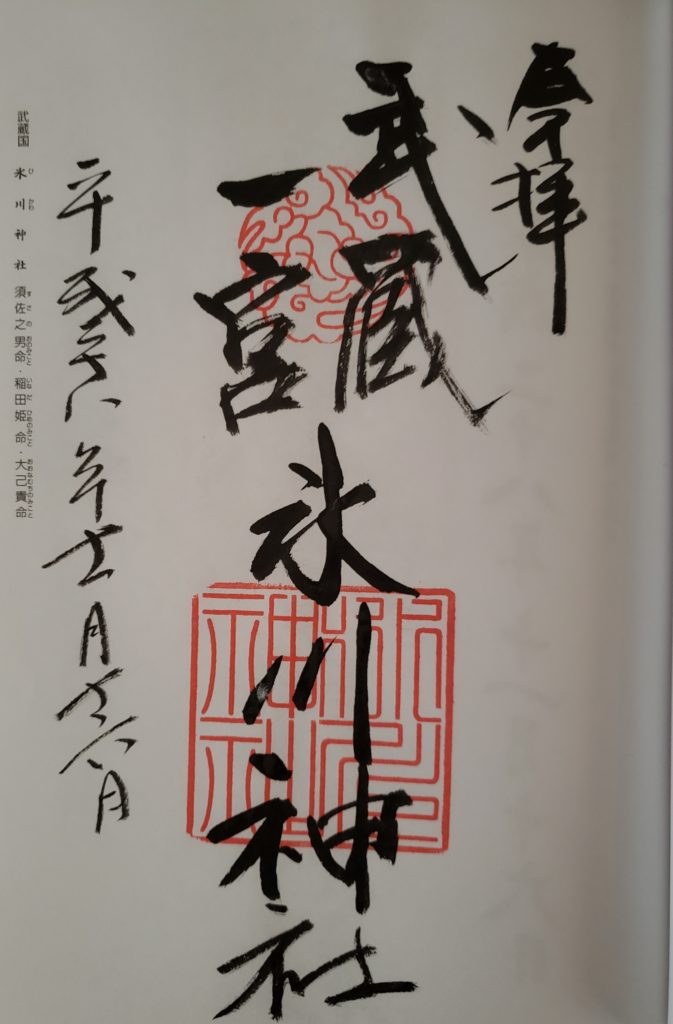 参拝
武蔵
一宮
氷川神社
氷川
神社
平成二十八年十一月
武蔵国 氷川神社 須佐之男命・稲田姫命・大己貴命